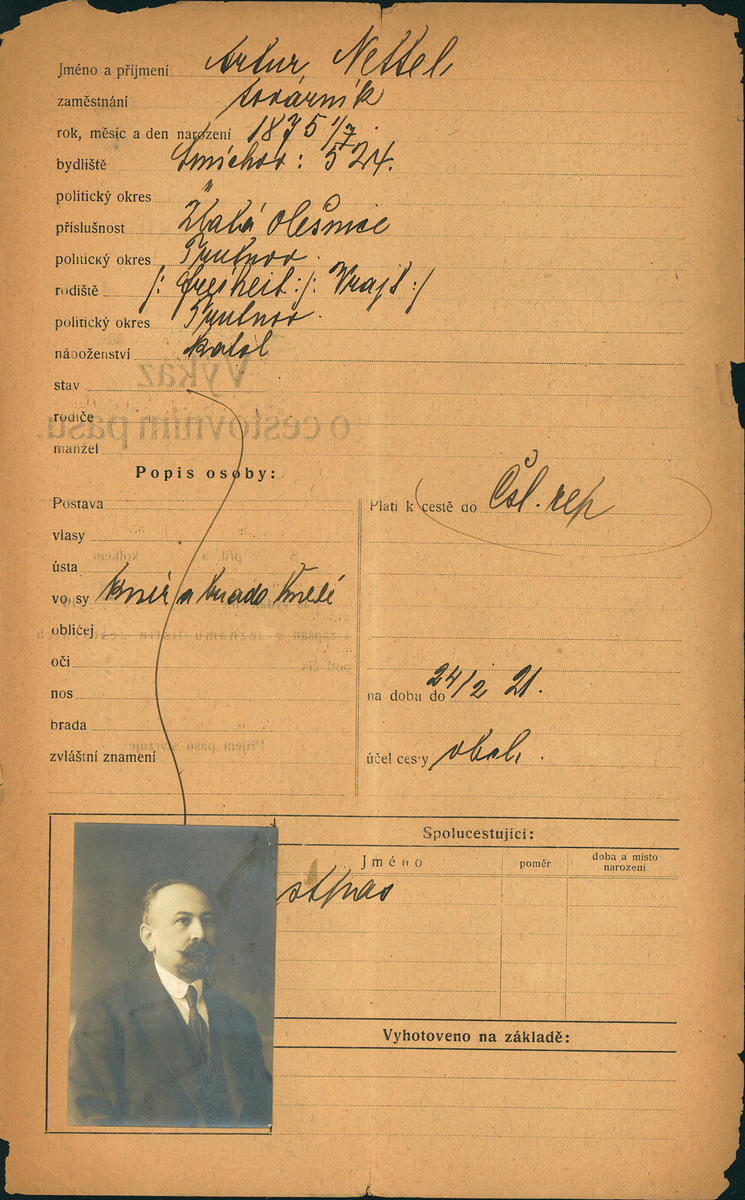 Jméno a příjmení Artur Nettel
zaměstnání továrník
rok, měsíc a den narození 1875 1/7
bydliště Smíchov : 524.
politický okres "
příslušnost Zlatá Olešnice
politický okres Trutnov
rodiště /: Freiheit :/: Vrajt :/
politický okres Trutnov
náboženství katol
stav
rodiče
manžel
Výkaz
o cestovním pasu.
Popis osoby:
Postava
vlasy
ústa
vousy knír a brada
obličej
oči
nos
brada
zvláštní znamení
Platí k cestě do Čsl. rep
na dobu do 24/2 21.
účel cesty obch.
Příjem pasu stvrzuje
Spolucestující:
Jméno poměr doba a místo
narození
Vyhotoveno na základě: